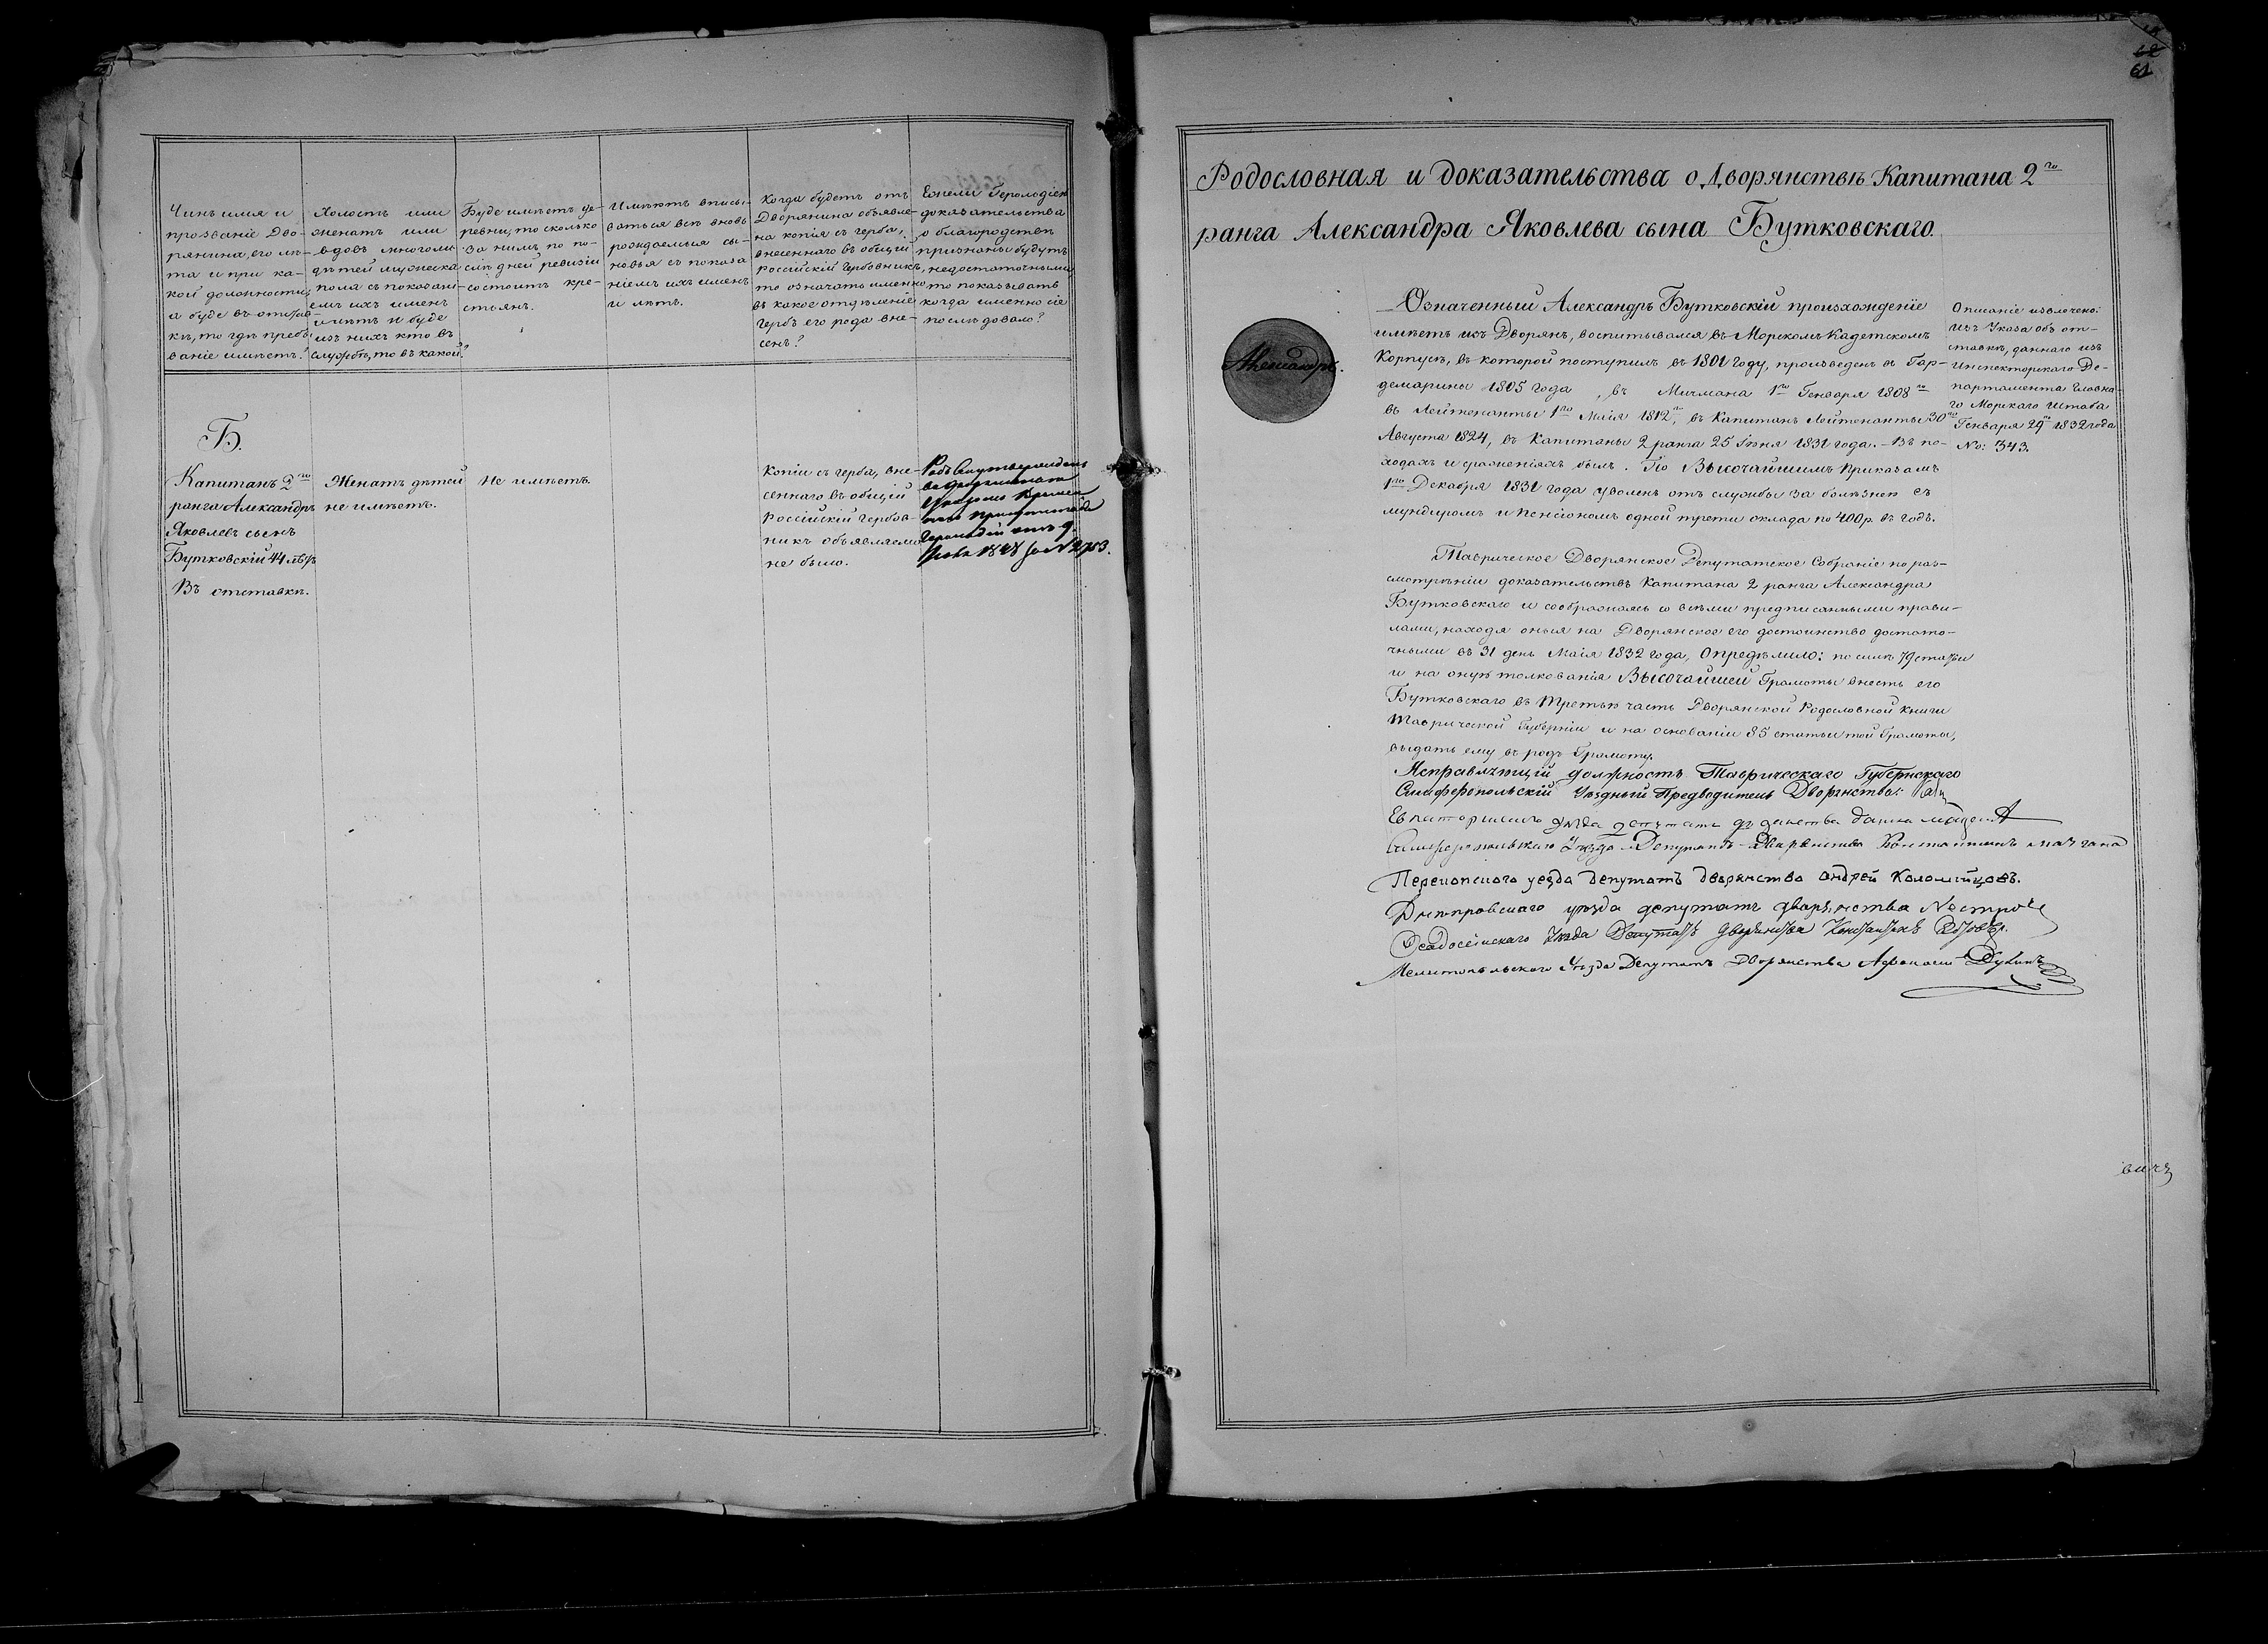 Чинъ имя и
прозваніе Дво-
рянина, его лѣ-
та и при ка-
кой должности,
а буде въ отстав-
кѣ, то гдѣ пребы
ваніе имѣетъ?
Холостъ или
женатъ или
вдовъ многоли
дѣтей мужеска
поля съ показані-
емъ ихъ именъ
лѣтъ и буде
изъ нихъ кто въ
службѣ, то въ какой?
Буде имѣетъ де-
ревни, то сколько
за нимъ по по-
слѣдней ревизіи
состоитъ кре-
стьянъ.
Имѣютъ вписы-
ваться всѣ вновь
рождаемыя сы-
новья съ показа
ніемъ ихъ именъ
и лѣтъ.
Когда будетъ отъ
Дворянина объявле-
на копія съ герба,
внесеннаго въ общій
Россійскій Гербовникъ,
то означать именно
въ какое отдѣленіе
гербъ его рода вне-
сенъ?
Ежели Герольдіею
доказательства
о благородствѣ
признаны будутъ
недостаточными
то показывать
когда именно сіе
послѣдовало?
Б.
Капитанъ 2го
ранга Александръ
Яковлевъ сынъ
Бутковскій 44 лѣтъ
Въ отставкѣ.
Женатъ дѣтей
не имѣетъ.
Не имѣетъ.
Копіи съ герба, вне-
сеннаго въ общій
Россійскій Гербов-
никъ объявляемо
не было.
Родъ утвержденъ
въ дворянствѣ
Указомъ Времен
наго присутствія
Герольдіи отъ 9
1848 за № 2753.
62
61
Родословная и доказательства о Дворянствѣ Капитана 2го
ранга Александра Яковлева сына Бутковскаго.
Александръ.
Означенный Александръ Бутковскій происхожденіе
имѣетъ изъ Дворянъ, воспитывался въ Морскомъ Кадетскомъ
Корпусѣ, въ которой поступилъ въ 1801 году, произведенъ въ Гар-
демарины 1805 года, въ Мичмана 1го Генваря 1808го
въ Лейтенанты 1го Маія 1812го, въ Капитанъ Лейтенанты 30го
Августа 1824, въ Капитаны 2 ранга 25 Іюня 1831 года. – Въ по-
ходахъ и сраженіяхъ былъ. По Высочайшимъ Приказамъ
1го Декабря 1831 года уволенъ отъ службы за болѣзнею съ
мундиромъ и пенсіономъ одной трети оклада по 400 р. въ годъ.
Описаніе извлечено:
изъ Указа объ от-
ставкѣ, даннаго изъ
Инспекторскаго Де-
партамента Главна-
го Морскаго Штаба
Генваря 29го 1832 года
No: 343.
Таврическое Дворянское Депутатское Собраніе по раз-
смотрѣніи доказательствъ Капитана 2 ранга Александра
Бутковскаго и сообразаясь со всѣми предписанными прави-
лами, находя оныя на Дворянское его достоинство достато-
чными въ 31 день Маія 1832 года, Опредѣлило: по силѣ 79 статьи
и на онуѣ толкованія Высочайшей Грамоты внесть его
Бутковскаго въ Третью часть Дворянской Родословной книги
Таврической Губерніи и на основаніи 85 статьи той Грамоты,
выдать ему въ родъ Грамоту.
Исправляющій должность Таврическаго Губернскаго
Симферопольскій Уѣздный Предводитель Дворянства:
Евпаторійскаго уѣзда депутатъ
Симферопольскаго Уѣзда Депутатъ Дворянства Константинъ Мазгана
Перекопскаго уезда депутатъ дворянства Андрей Коломійцовъ.
Днепровскаго уѣзда депутатъ дворянства
Ѳеодосійскаго Уѣзда Депутатъ Дворянства Константинъ
Мелитопольскаго Уѣзда Депутатъ Дворянства Афанасій